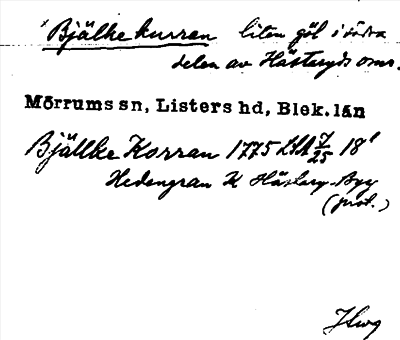 x Bjälke kurran liten göl i södra
delen av Hästaryds omr.
Mörrums sn, Listers hd, Blek. län
Bjällke Korran 1775 LSA 7/25 18
Hedengran K Hästary By
(prot.)